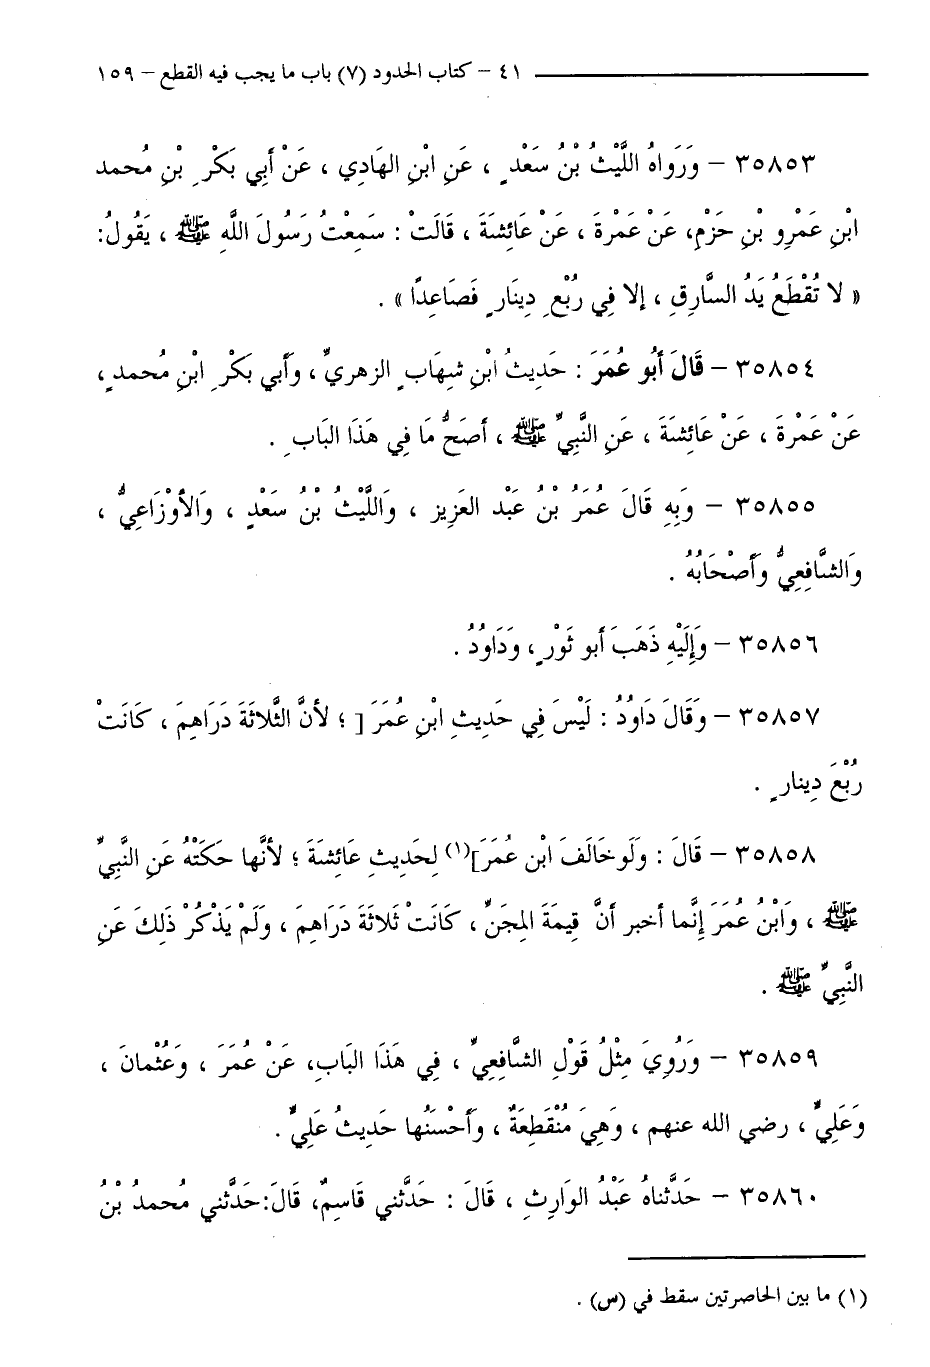 ٤١ – كتاب الحدود (٧) باب ما يجب فيه القطع – ١٥٩
٣٥٨٥٣ – وَرَوَاهُ اللَّيْثُ بْنُ سَعْدٍ ، عَنِ ابْنِ الهَادِي ، عَنْ أَبِي بَكْرِ بْنِ مُحمد
ابْنِ عَمْرِو بْنِ حَزْمٍ، عَنْ عَمْرةَ ، عَنْ عَائِشَةَ ، قَالَتْ : سَمِعْتُ رَسُولَ اللَّهِ ﷺ ، يَقُولُ:
« لا تُقْطَعُ يَدُ السَّارِقِ ، إلا فِي رُبُعِ دِينَارٍ فَصَاعِدًا » .
٣٥٨٥٤ – قَالَ أَبُو عُمَرَ : حَدِيثُ ابْنِ شِهَابٍ الزهريِّ ، وَأَبي بَكْرِ ابْنِ مُحمدٍ ،
عَنْ عَمْرةَ ، عَنْ عَائِشَةَ ، عَنِ النَّبِيِّ ﷺ ، أَصَحُّ مَا فِي هَذَا البَابِ .
٣٥٨٥٥ – وَبِهِ قَالَ عُمَرُ بْنُ عَبْد العَزِيز ، وَاللَّيْثُ بْنُ سَعْدٍ ، وَالأوْزَاعِيُّ ،
وَالشَّافِعِيُّ وَأَصْحَابُهُ .
٣٥٨٥٦ – وَإِلَيْهِ ذَهَبَ أَبو ثَوْرٍ ، وَدَاوُدُ .
٣٥٨٥٧ – وَقَالَ دَاوُدُ : لَيْسَ فِي حَدِيثِ ابْنِ عُمَرَ [ ؛ لأنَّ الثَّلاثَةَ دَرَاهِمَ ، كَانَتْ
رُبُعَ دِينارٍ .
٣٥٨٥٨ – قَالَ : وَلَو خَالَفَ ابْن عُمَرَ](١) لِحَدِيثِ عَائِشَةَ ؛ لأنَّها حَكَتْهُ عَنِ النَّبِيِّ
ﷺ ، وَابْنُ عُمَرَ إِنَّما أخبر أنَّ قِيمَةَ المِجَنِّ ، كَانَتْ ثَلاثَةَ دَرَاهِمَ ، وَلَمْ يَذْكُرْ ذَلِكَ عَنِ
النَّبِيِّ ﷺ .
٣٥٨٥٩ – وَرُوِيَ مِثْلُ قَوْلِ الشَّافِعِيِّ ، فِي هَذَا البَابِ، عَنْ عُمَرَ ، وَعُثْمانَ ،
وَعَلِيٍّ ، رضي الله عنهم ، وَهِيَ مُنْقَطِعَةٌ ، وَأَحْسَنُها حَدِيثُ عَلِيٍّ .
٣٥٨٦٠ – حَدَّثناهُ عَبْدُ الوَارِثِ ، قَالَ : حَدَّثني قَاسِمٌ، قَالَ:حَدَّثني مُحمدُ بْنُ
(١) ما بين الحاصرتين سقط في (س) .